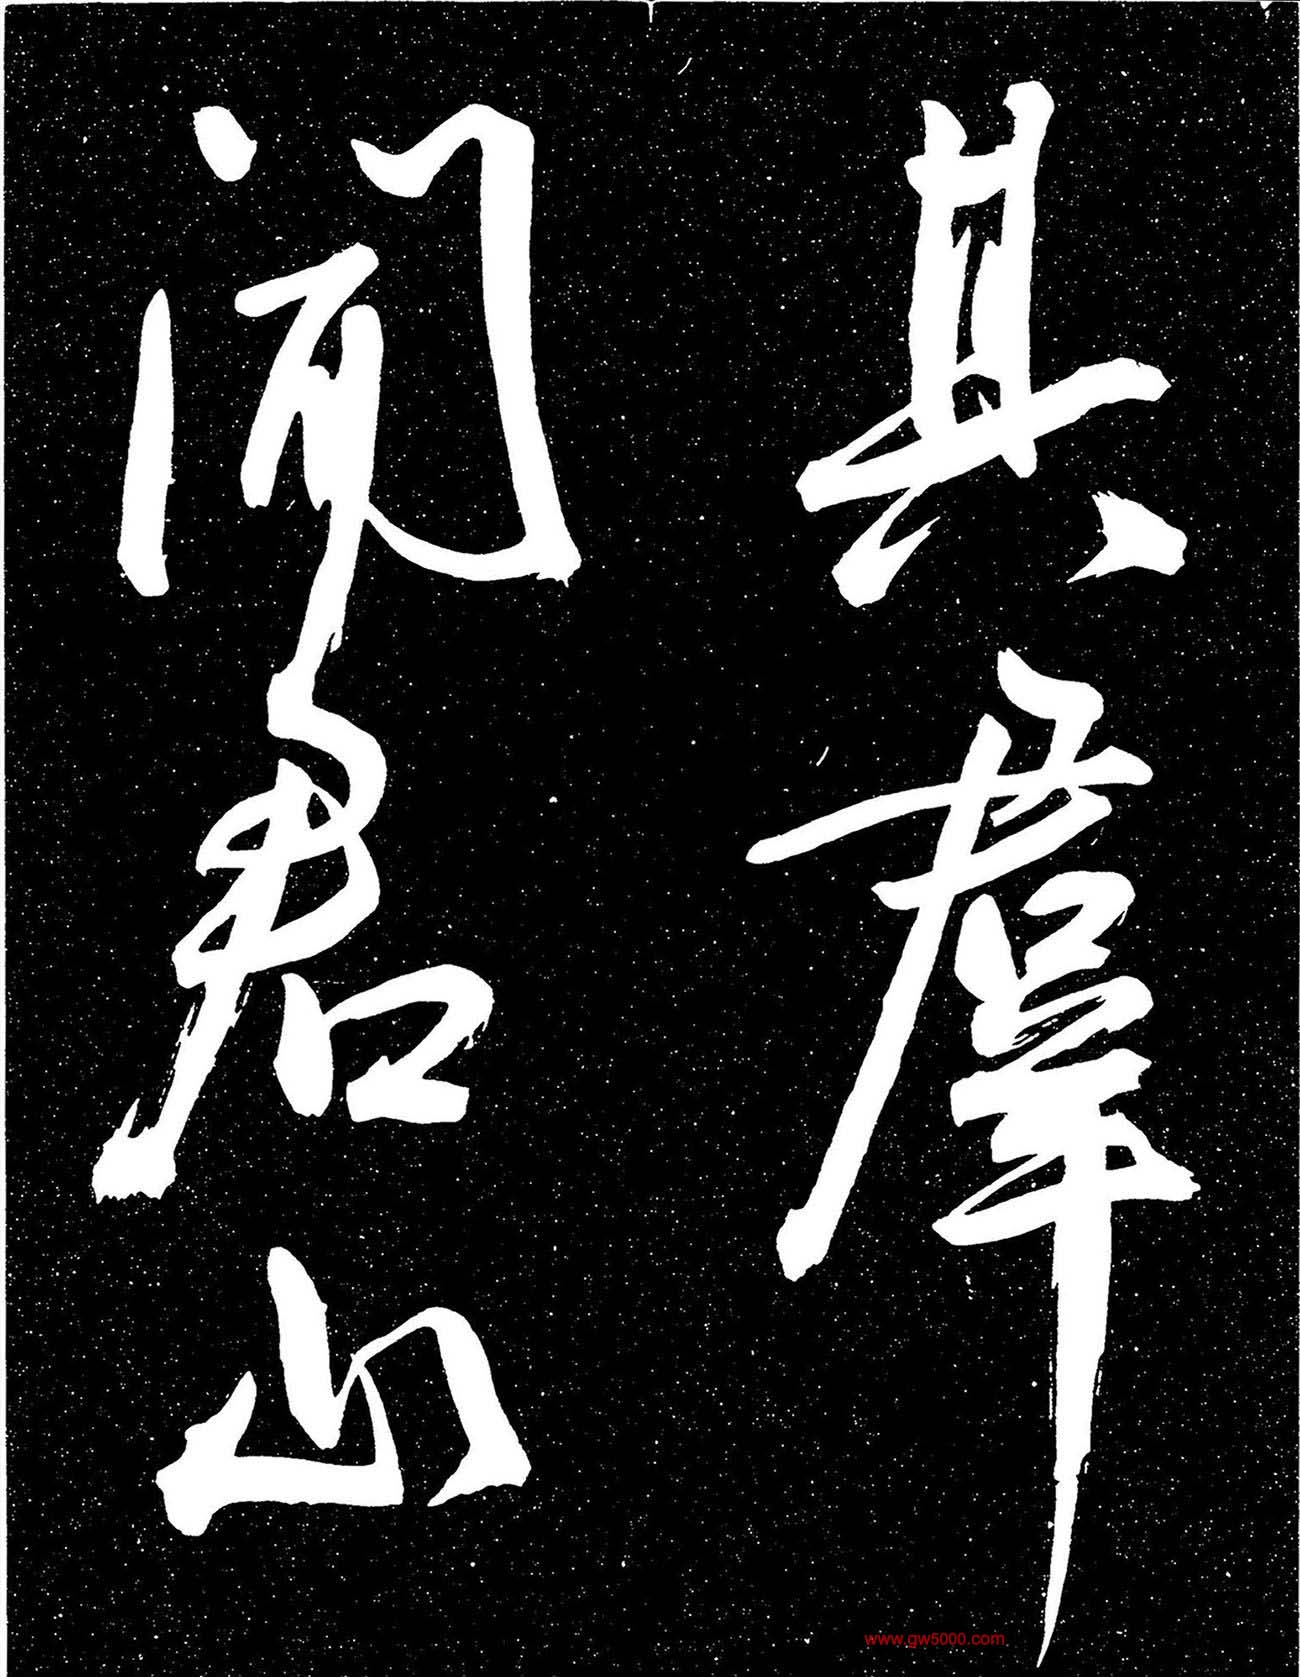 其羣
聞君山
www.gw5000.com